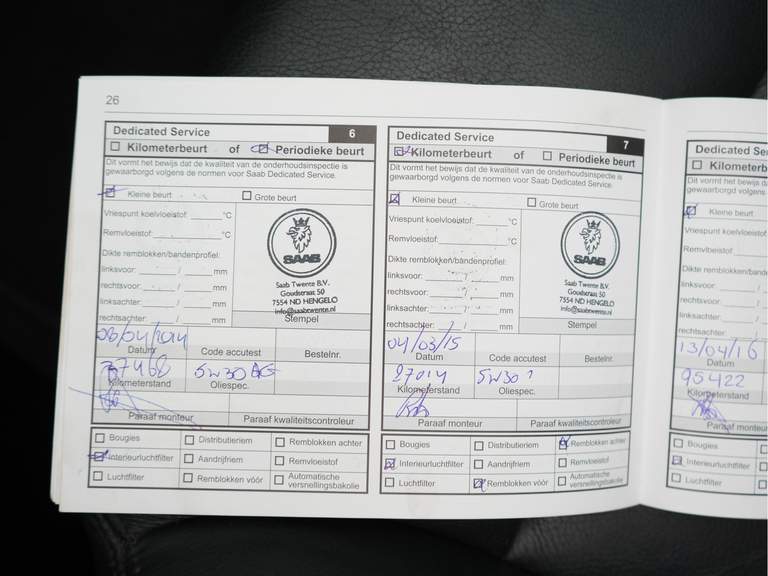 26
Dedicated Service 6
Kilometerbeurt of Periodieke beurt
Dit vormt het bewijs dat de kwaliteit van de onderhoudsinspectie is
gewaarborgd volgens de normen voor Saab Dedicated Service.
Kleine beurt Grote beurt
Vriespunt koelvloeistof: °C
Remvloeistof: °C
Dikte remblokken/bandenprofiel:
linksvoor: / mm
rechtsvoor: / mm
linksachter: / mm
rechtsachter: / mm
SAAB
Saab Twente B.V.
Goudstraat 50
7554 ND HENGELO
info@saabtwente.nl
Stempel
08/04/2014
Datum Code accutest Bestelnr.
77468 5W30
Kilometerstand Oliespec.
Paraaf monteur Paraaf kwaliteitscontroleur
Bougies Distributieriem Remblokken achter
Interieurluchtfilter Aandrijfriem Remvloeistof
Luchtfilter Remblokken vóór Automatische
versnellingsbakolie
Dedicated Service 7
Kilometerbeurt of Periodieke beurt
Dit vormt het bewijs dat de kwaliteit van de onderhoudsinspectie is
gewaarborgd volgens de normen voor Saab Dedicated Service.
Kleine beurt Grote beurt
Vriespunt koelvloeistof: °C
Remvloeistof: °C
Dikte remblokken/bandenprofiel:
linksvoor: / mm
rechtsvoor: / mm
linksachter: / mm
rechtsachter: / mm
SAAB
Saab Twente B.V.
Goudstraat 50
7554 ND HENGELO
info@saabtwente.nl
Stempel
04/03/15
Datum Code accutest Bestelnr.
87014 5W30
Kilometerstand Oliespec.
Paraaf monteur Paraaf kwaliteitscontroleur
Bougies Distributieriem Remblokken achter
Interieurluchtfilter Aandrijfriem Remvloeistof
Luchtfilter Remblokken vóór Automatische
versnellingsbakolie
Dedicated Se
Kilometerb
Dit vormt het bewijs da
gewaarborgd volgens
Kleine beurt
Vriespunt koelvloeistof:
Remvloeistof:
Dikte remblokken/band
linksvoor:
rechtsvoor:
linksachter:
rechtsachter:
13/04/16
Datum
95422
Kilometerstand
Paraaf monteur
Bougies
Interieurluchtfilter
Luchtfilter